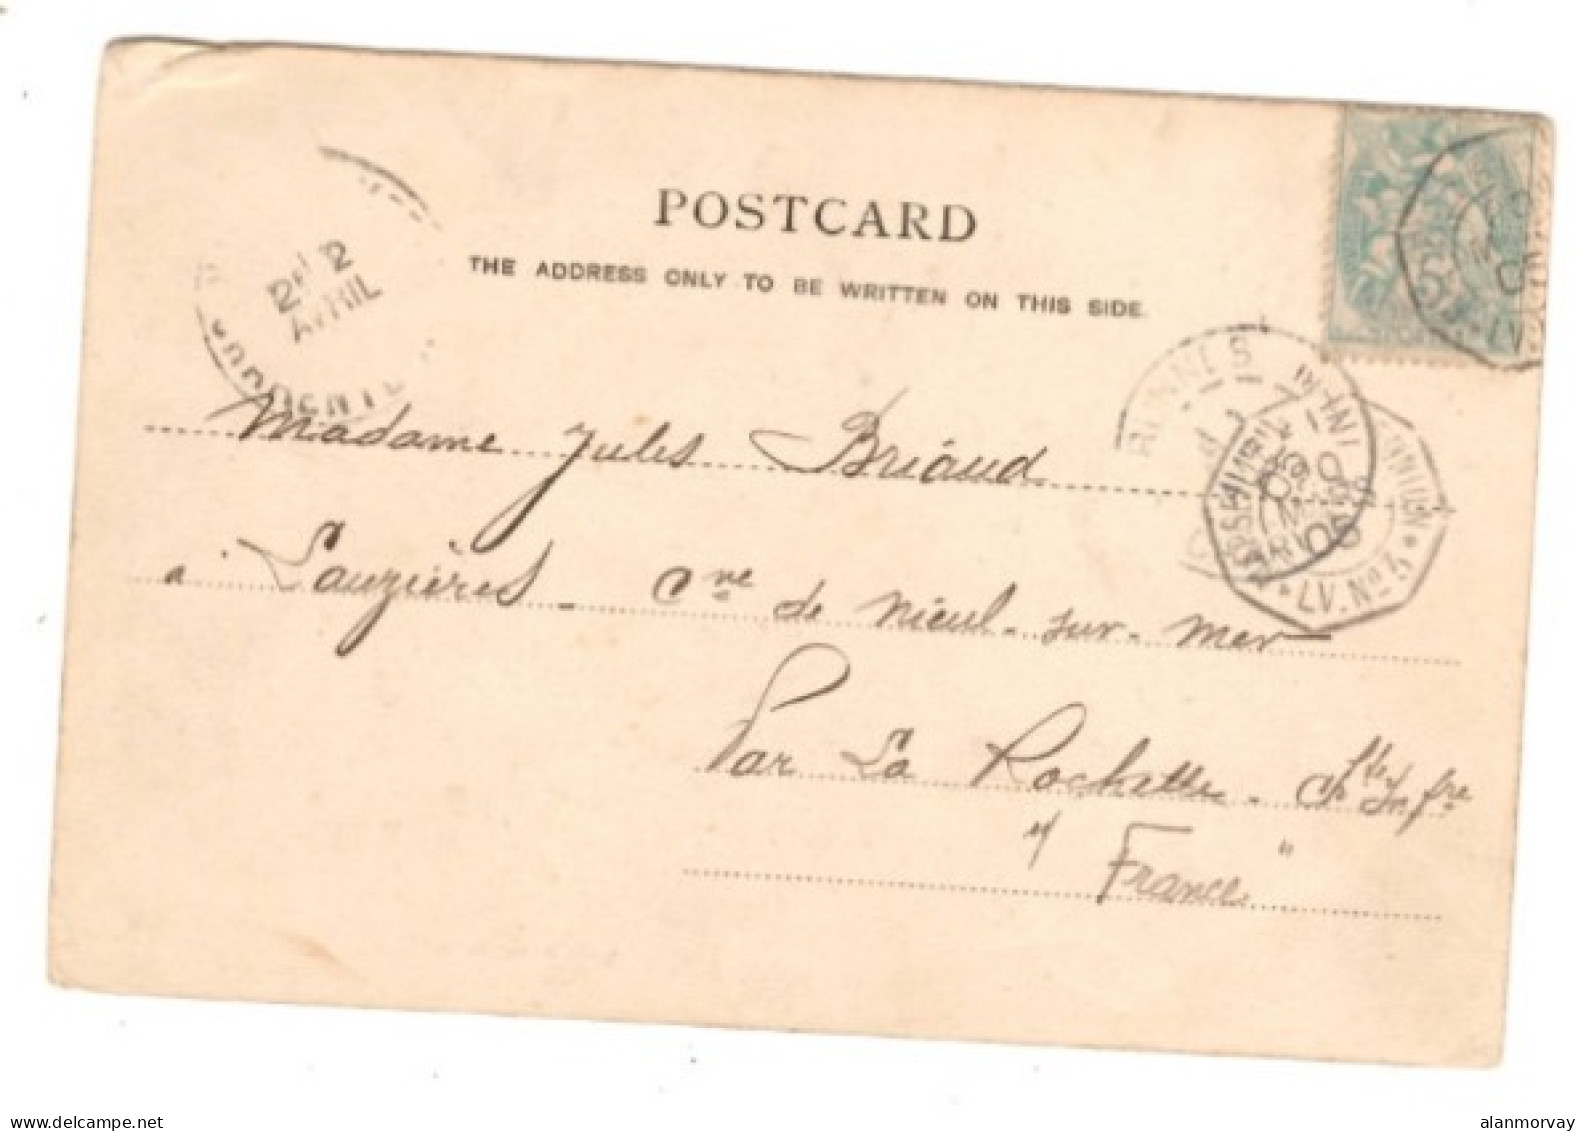 POSTCARD
THE ADDRESS ONLY TO BE WRITTEN ON THIS SIDE.
2E 2
AVRIL
RENNES
LV. No 3
5
Madame Jules Briaud
à Lauzières - Cne de Nieul-sur-mer
Par La Rochelle - Chte Infre
"France"
www.delcampe.net
alanmorvay